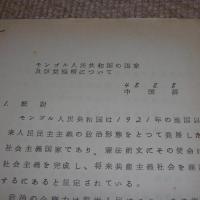 モンゴル人民共和国の国家
及び党機構について
中国課
1. 総説
モンゴル人民共和国は1921年の建国以
来人民民主主義の政治形態をとつて発展した
社会主義国家であり、憲法前文にその使命は
社会主義を完成し、将来共産主義社会を建設
するにあると規定されている。